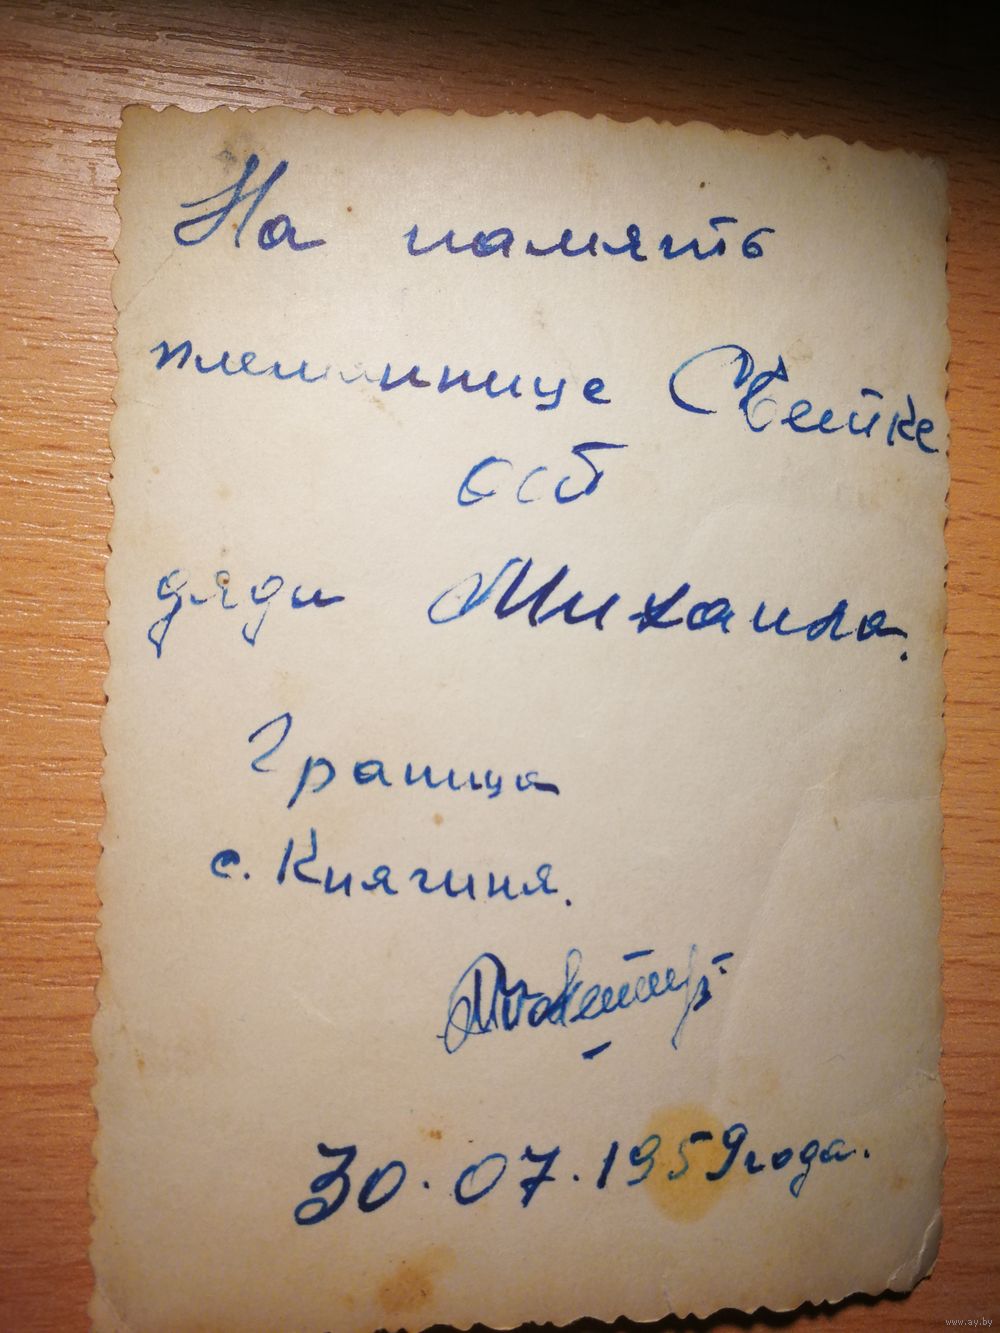 На память
племяннице Светке
от
дяди Михаила.
Граница
с. Княгиня.
30.07.1959 года.
www.ay.by